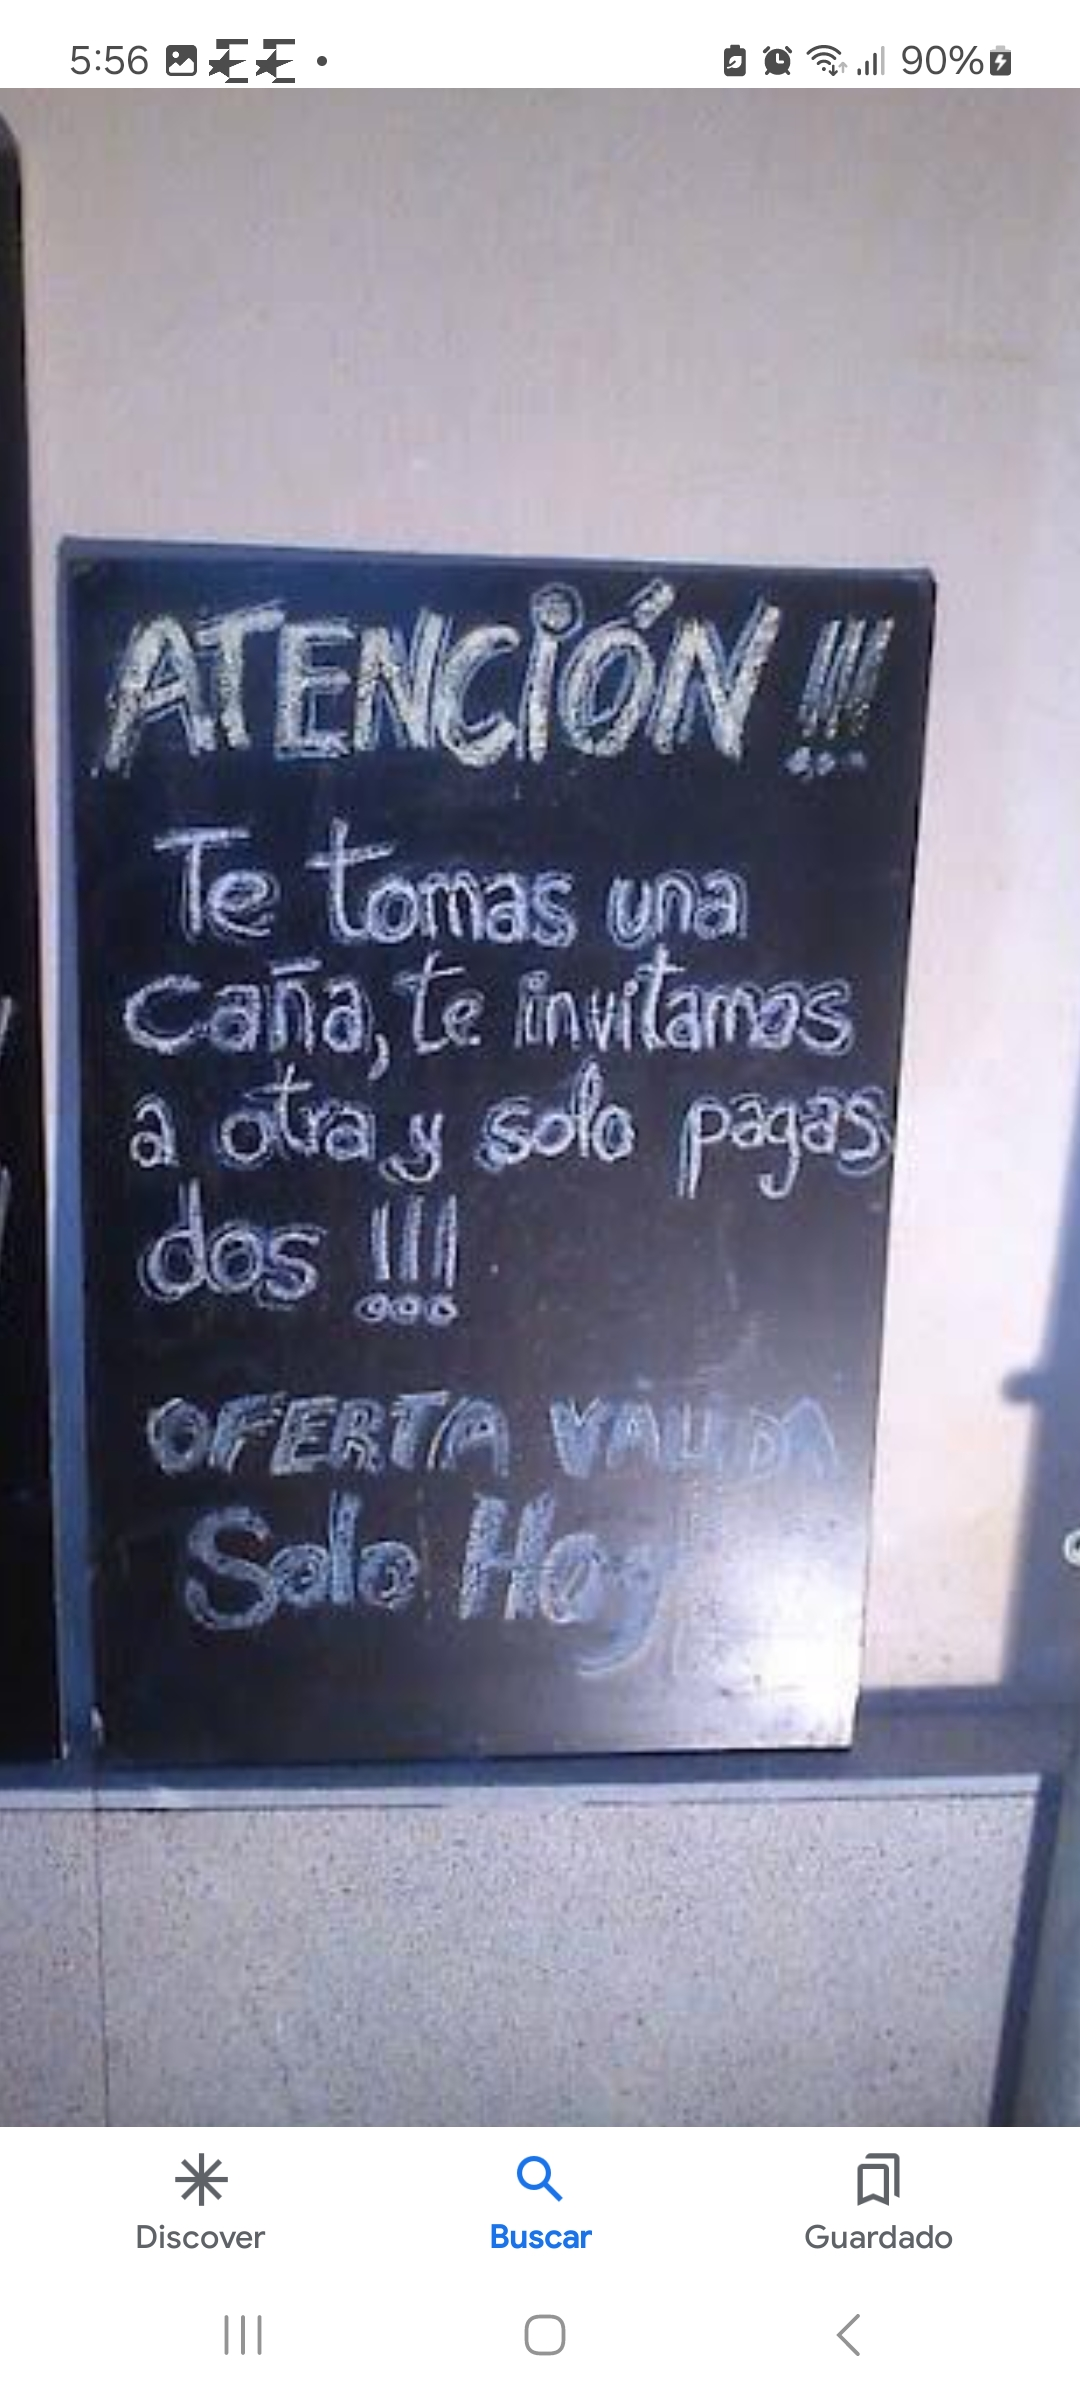 5:56
90%
ATENCIÓN !!!
Te tomas una
caña, te invitamos
a otra y solo pagas
dos !!!
OFERTA VALIDA
Solo Hoy
Discover
Buscar
Guardado